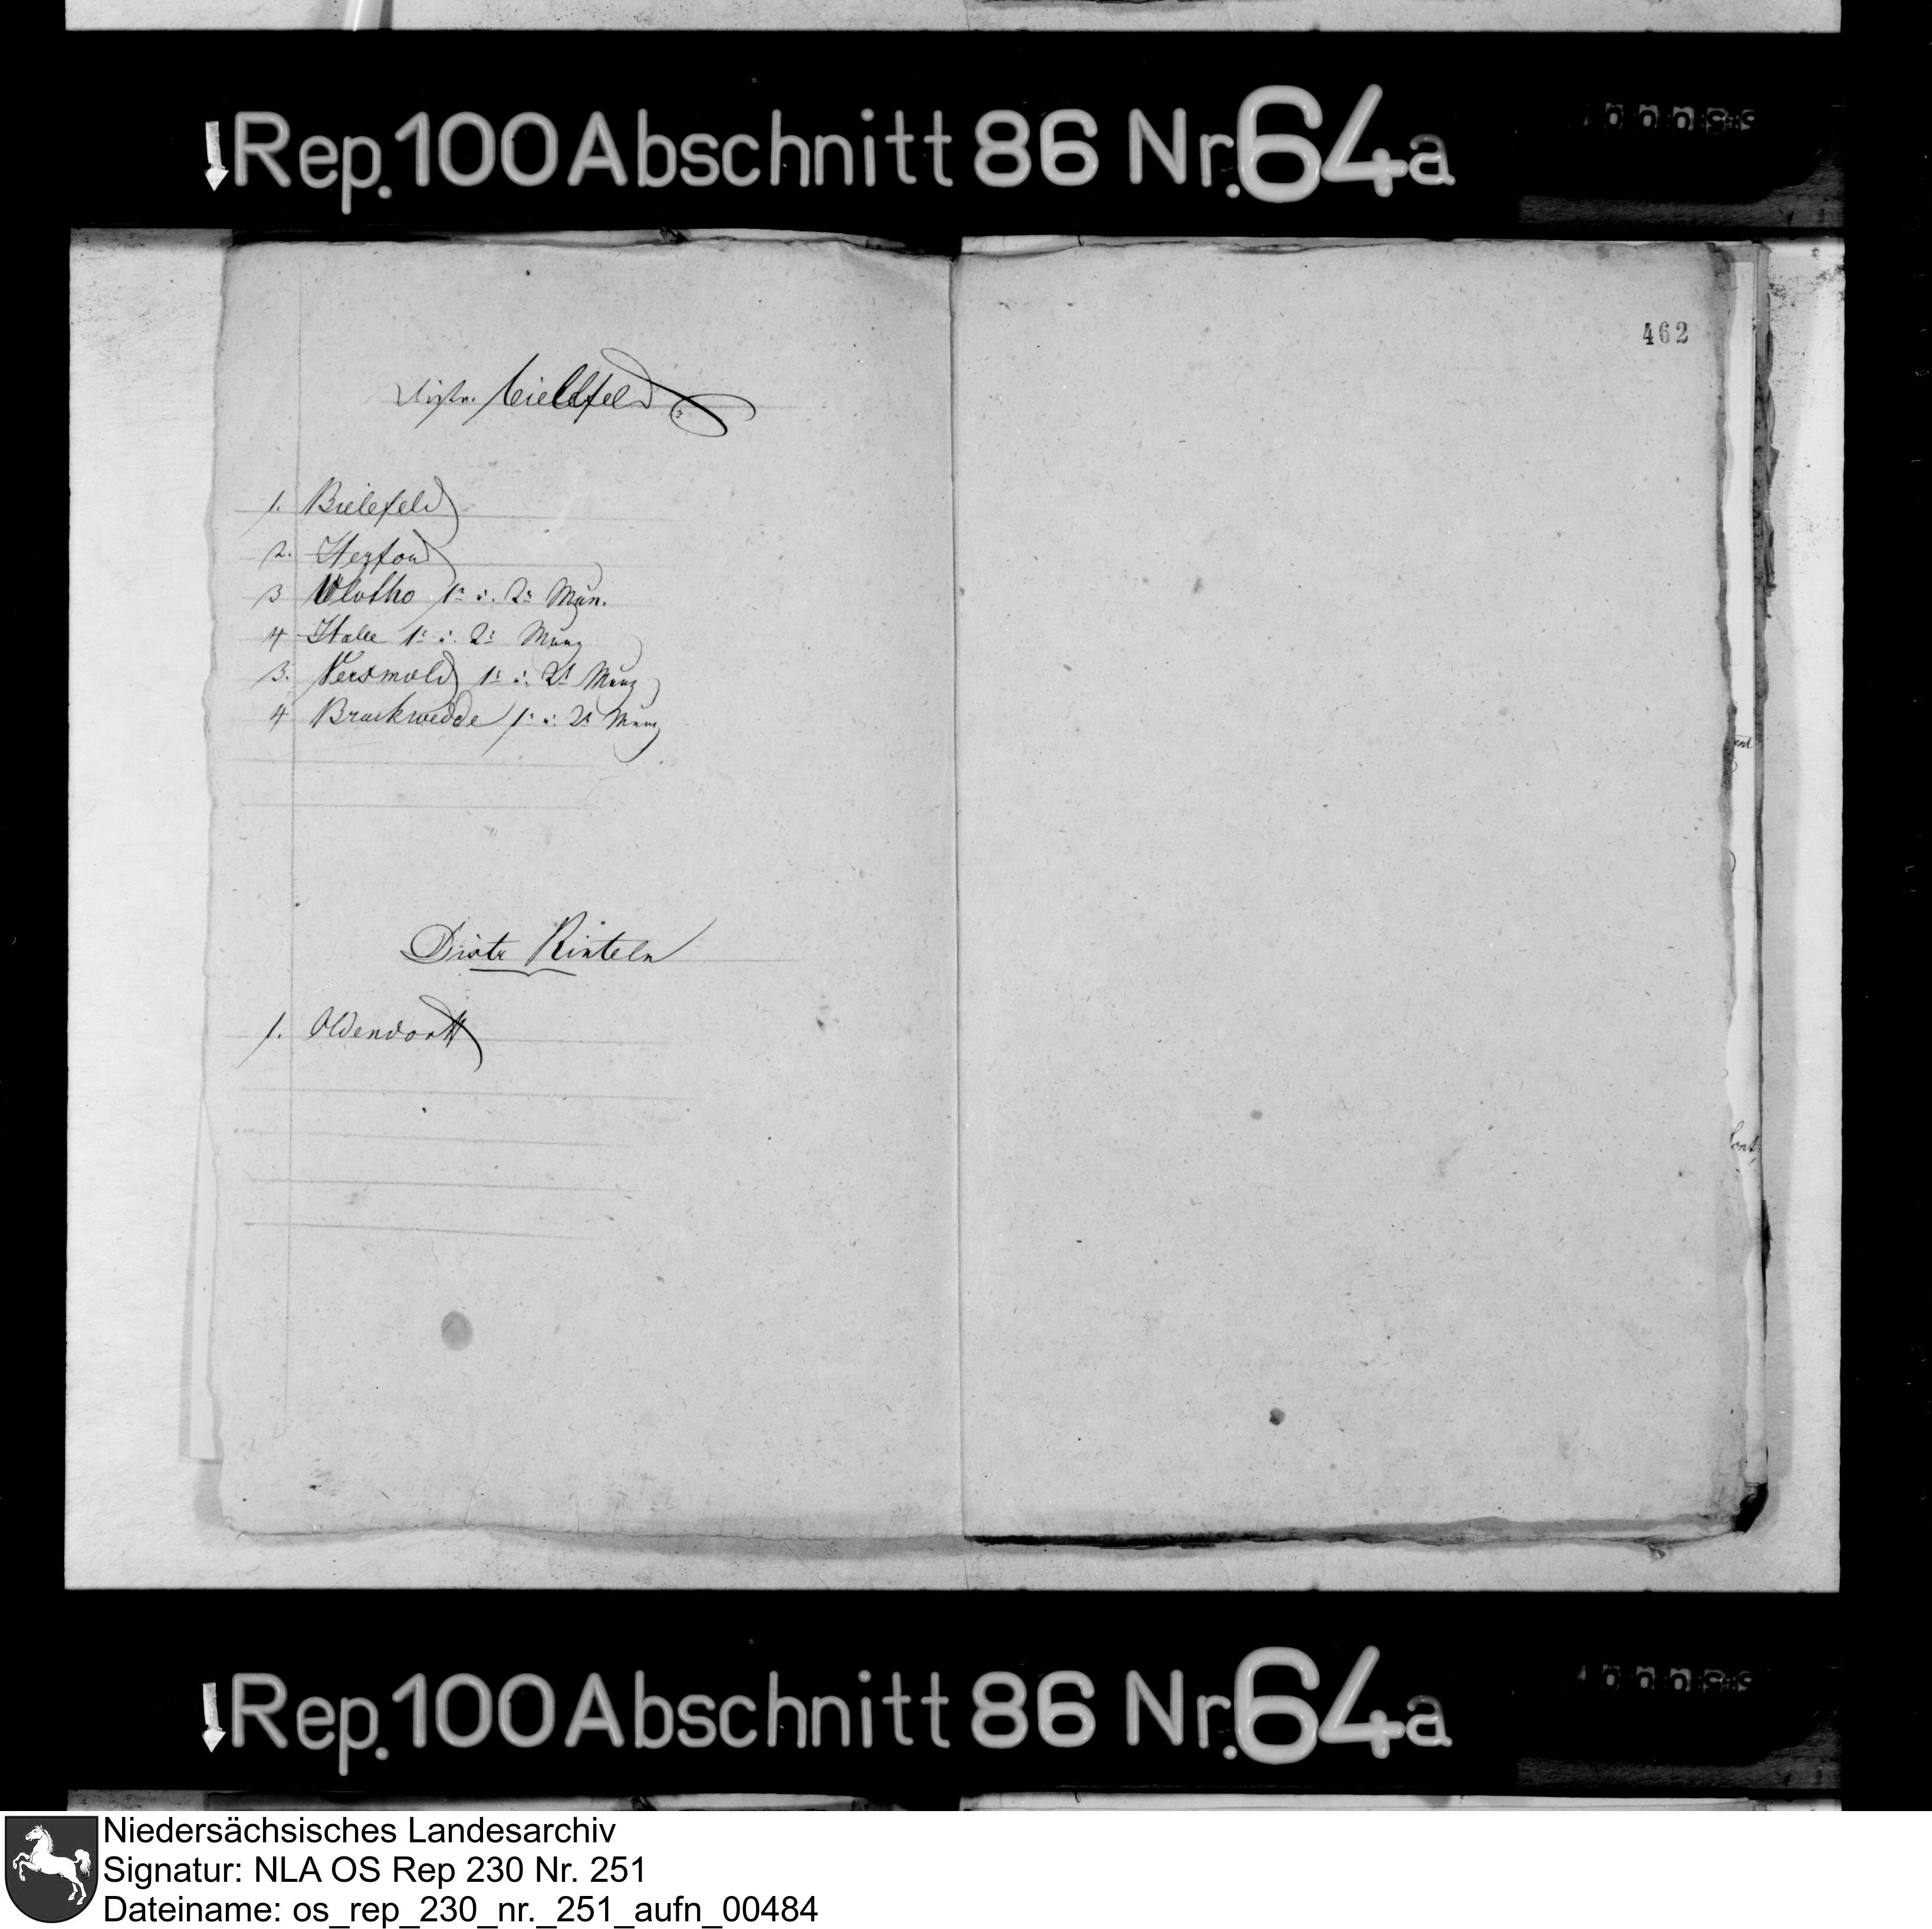 Rep. 100 Abschnitt 86 Nr. 64a
462
Distr. Bielefeld
1. Bielefeld
2. Herford
3 Vlotho 1r u. 2r Mun.
4 Halle 1r u. 2r Mun
3. Versmold 1r u. 2r Mun
4 Brackwedde 1r u. 2r Mun
Distr Rinteln
1. Oldendorff
Rep. 100 Abschnitt 86 Nr. 64a
Niedersächsisches Landesarchiv
Signatur: NLA OS Rep 230 Nr. 251
Dateiname: os_rep_230_nr._251_aufn_00484